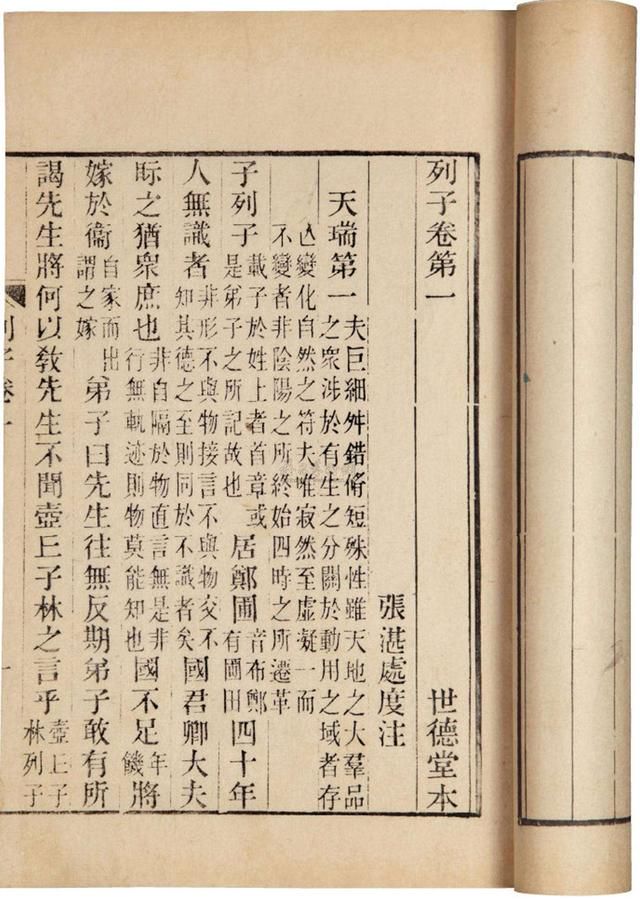 列子卷第一 世德堂本
張湛處度注
天瑞第一 夫巨細舛錯脩短殊性雖天地之大羣品之衆涉於有生之分關於動用之域者存
亾變化自然之符夫唯寂然至虛凝一而不變者非陰陽之所終始四時之所遷革
子列子 載子於姓上者首章或是弟子之所記故也 居鄭圃 音布鄭有圃田 四十年
人無識者 非形不與物接言不與物交不知其德之至則同於不識者矣 國君卿大夫
眎之猶衆庶也 非自隔於物直言無是非行無軌迹則物莫能知也 國不足 年饑 將
嫁於衞 自家而出謂之嫁 弟子曰先生往無反期弟子敢有所
謁先生將何以敎先生不聞壺丘子林之言乎 壺丘子林列子